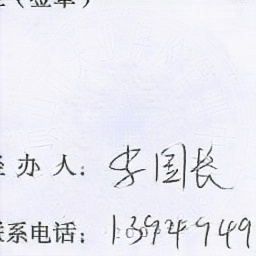 （签章）
经办人：李国长
联系电话：1394949